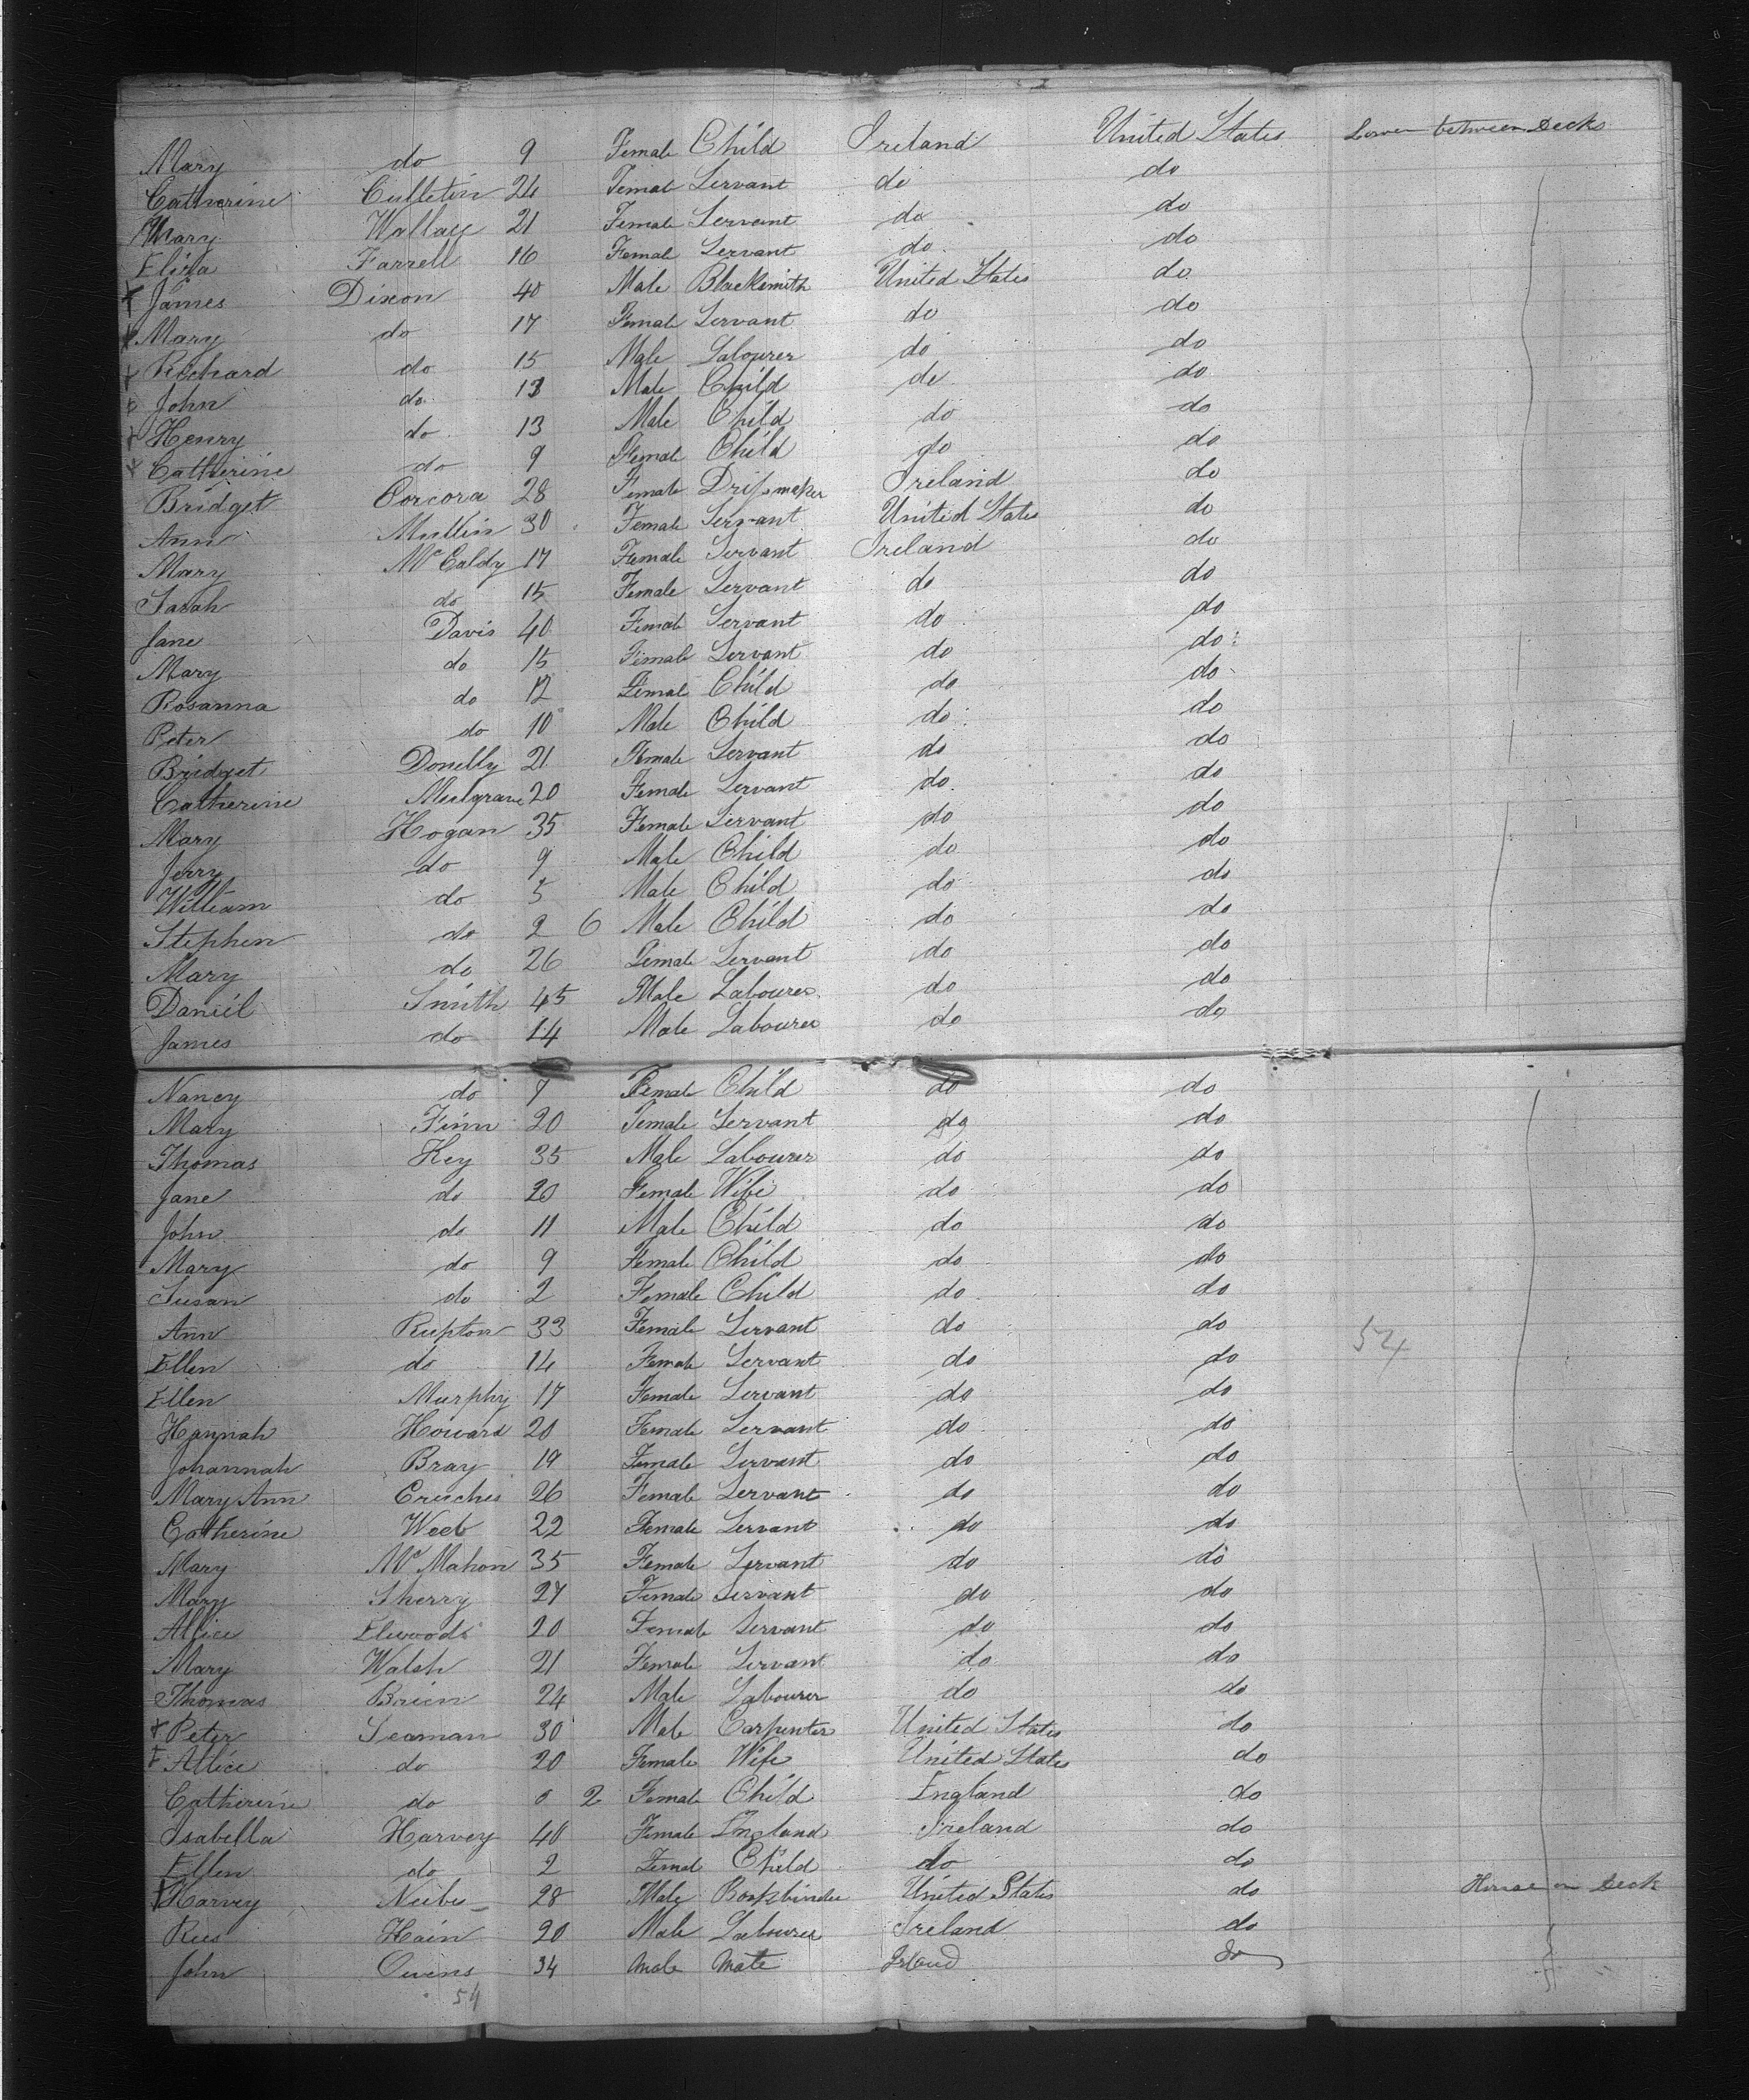 Mary do 9 Female Child Ireland United States Lower between Decks
Catherine Culletin 24 Female Servant do do
Mary Wallace 21 Female Servant do do
Eliza Farrell 16 Female Servant do do
James Dixon 40 Male Blacksmith United States do
Mary do 17 Female Servant do do
Richard do 15 Male Labourer do do
John do 13 Male Child do do
Henry do 13 Male Child do do
Catherine do 9 Female Child do do
Bridget Corcora 28 Female Dressmaker Ireland do
Ann Mullin 30 Female Servant United States do
Mary McCaldy 17 Female Servant Ireland do
Sarah do 15 Female Servant do do
Jane Davis 40 Female Servant do do
Mary do 15 Female Servant do do
Rosanna do 12 Female Child do do
Peter do 10 Male Child do do
Bridget Donelly 21 Female Servant do do
Catherine Mulgrave 20 Female Servant do do
Mary Hogan 35 Female Servant do do
Jerry do 9 Male Child do do
William do 5 Male Child do do
Stephen do 2 6 Male Child do do
Mary do 26 Female Servant do do
Daniel Smith 45 Male Labourer do do
James do 14 Male Labourer do do
Nancy do 7 Female Child do do
Mary Finn 20 Female Servant do do
Thomas Key 35 Male Labourer do do
Jane do 20 Female Wife do do
John do 11 Male Child do do
Mary do 9 Female Child do do
Susan do 2 Female Child do do
Ann Rupton 33 Female Servant do do
Ellen do 14 Female Servant do do 54
Ellen Murphy 17 Female Servant do do
Hannah Howard 20 Female Servant do do
Johannah Bray 19 Female Servant do do
Mary Ann Cruches 26 Female Servant do do
Catherine Weeb 22 Female Servant do do
Mary McMahon 35 Female Servant do do
Mary Sherry 27 Female Servant do do
Allice Elwoods 20 Female Servant do do
Mary Walsh 21 Female Servant do do
Thomas Brien 24 Male Labourer do do
Peter Seaman 30 Male Carpenter United States do
Allice do 20 Female Wife United States do
Catherine do 0 2 Female Child England do
Isabella Harvey 40 Female England Ireland do
Ellen do 2 Female Child do do
Harvey 28 Male Bookbinder United States do House on Deck
Rees Hain 20 Male Labourer Ireland do
John Owens 34 Male Mate Ireland do
54